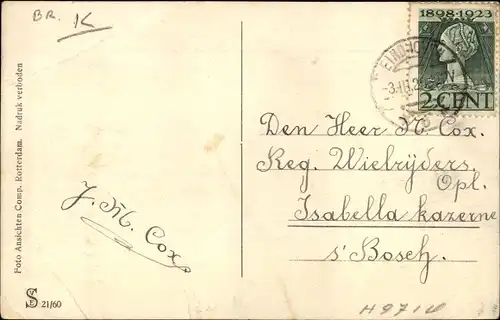 BR. K
1898-1923
EINDHOVEN
2 CENT
Den Heer N. Cox.
Reg. Wielrijders.
Opl.
Isabella kazerne
s' Bosch.
J. M. Cox
Foto Ansichten Comp. Rotterdam. Nadruk verboden
S 21/60